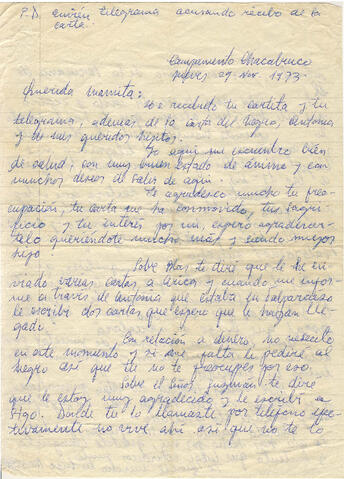 P.D. Envíen telegrama acusando recibo de la
carta.
Campamento Chacabuco
Jueves 29 Nov 1973
Querida mamita:
He recibido tu cartita y tu
telegrama, además de la carta del Negro, Antonia
y de mis queridos
Yo aquí me encuentro bien
de salud, con muy buen estado de ánimo y con
muchos deseos de salir de aquí.
Te agradezco mucho tu preo-
cupación, tu carta que me ha conmovido, tu sacri-
ficio y tu interés por mi, espero agradecer-
telo queriéndote mucho más y siendo mejor
hijo
Sobre Blas te diré que le he en
viado varias cartas a Arica y cuando me infor-
me a través de Antonia que estaba en Valparaíso
le escribí dos cartas que espero que le hayan lle-
gado.
Con relación a dinero, no necesito
en este momento y si me falta le pediré al
Negro así que tu no te preocupes por eso.
Sobre el Señor Guzmán te diré
que le estoy muy agradecido y le escribí a
Donde tu lo llamaste por teléfono efec-
tivamente no vive ahí así que no te lo